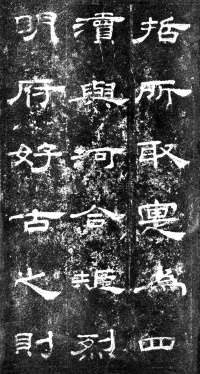 哲所取寔為四
瀆與河合矩烈
明府好古之則